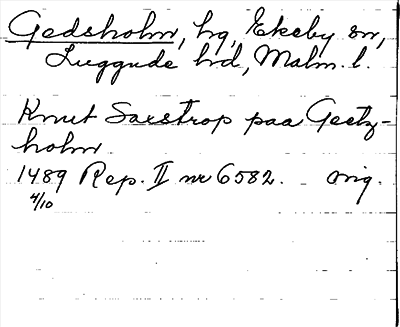 Gedsholm, hg, Ekeby sn,
Luggude hd, Malm. l.
Knut Saxstrop paa Geetz-
holm
1489 Rep. II nr 6582. orig.
4/10